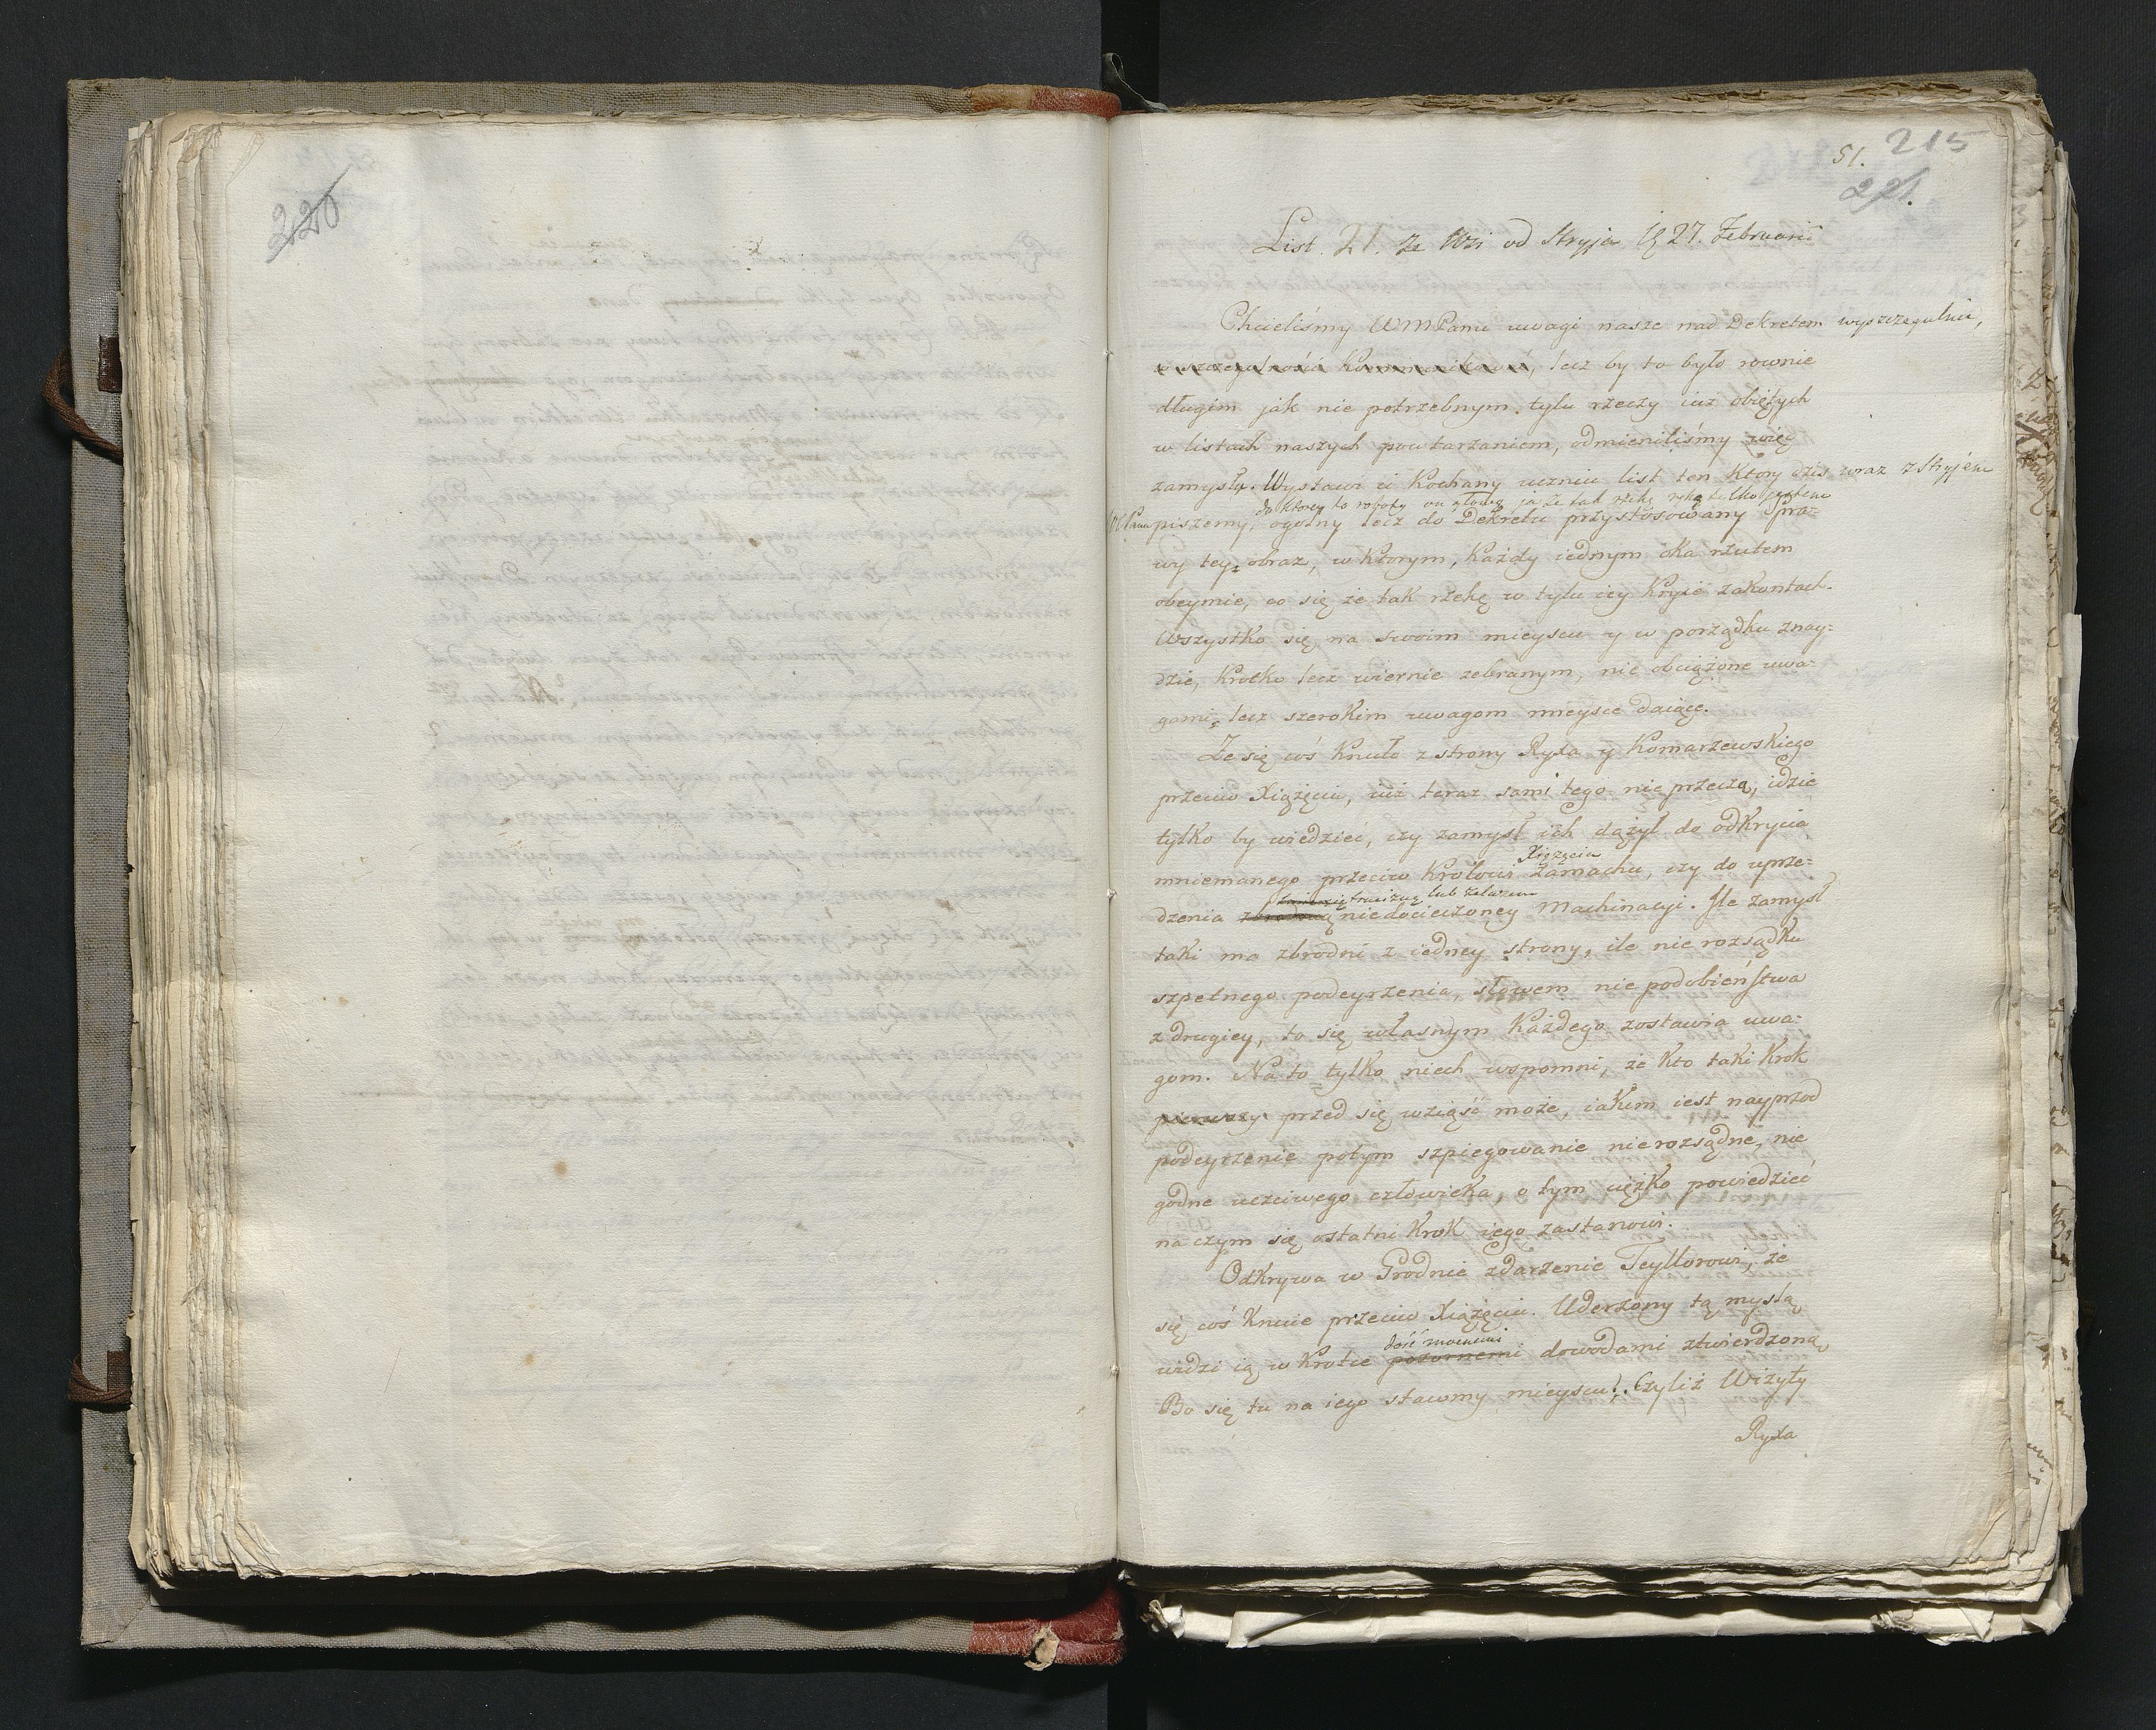 226
51. 215
221.
List. 21. Ze Wsi od Stryja 27. Februarii
Chcieliśmy WMPanu uwagi nasze nad Dekretem wyszczegulnić,
w szczegulności kommunikować, lecz by to było rownie
długim jak nie potrzebnym, tylu rzeczy iuż obiętych
w listach naszych powtarzaniem, odmieniliśmy więc
zamysł. Wystawi ci Kochany uczniu list ten ktory dziś wraz z Stryjem
do ktorey to roboty on głową ja że tak rzekę ręką tylko jestem
WPanu piszemy, ogolny lecz do Dekretu przystosowany spra-
wy tey obraz, w ktorym, każdy iednym oka rzutem
obeymie, co się że tak rzekę w tylu iey kryie zakontach.
Wszystko się na swoim mieyscu y w porządku znay-
dzie, krotko lecz wiernie zebranym, nie obciążone uwa-
gami, lecz szerokim uwagom mieysce daiące.
Że się coś knuło z strony Ryxa y Komarzewskiego
przeciw Xiążęciu, iuż teraz sami tego nie przeczą, idzie
tylko by wiedzieć, czy zamysł ich dążył do odkrycia
Xiążęcia
mniemanego przeciw Krolowi zamachu, czy do uprze-
trucizną lub żelazem
dzenia niedocieczoney Machinacyi. Ile zamysł
taki ma zbrodni z iedney strony, ile nie rozsądku
szpetnego podeyrzenia, słowem nie podobieństwa
z drugiey, to się własnym każdego zostawia uwa-
gom. Na to tylko niech wspomni, że kto taki krok
pierwszy przed się wziąść może, iakim iest nayprzod
podeyrzenie potym szpiegowanie nierozsądne, nie
godne uczciwego człowieka, o tym ciężko powiedzieć
na czym się ostatni krok iego zastanowi.
Odkrywa w Grodnie zdarzenie Teyllorowi, że
się coś knuie przeciw Xiążęciu. Uderzony tą myslą
dość mocnemi
widzi ią w krotce pozornemi dowodami ztwierdzoną,
Bo się tu na iego stawmy mieyscu!. Czyliż Wizyty
Ryxa